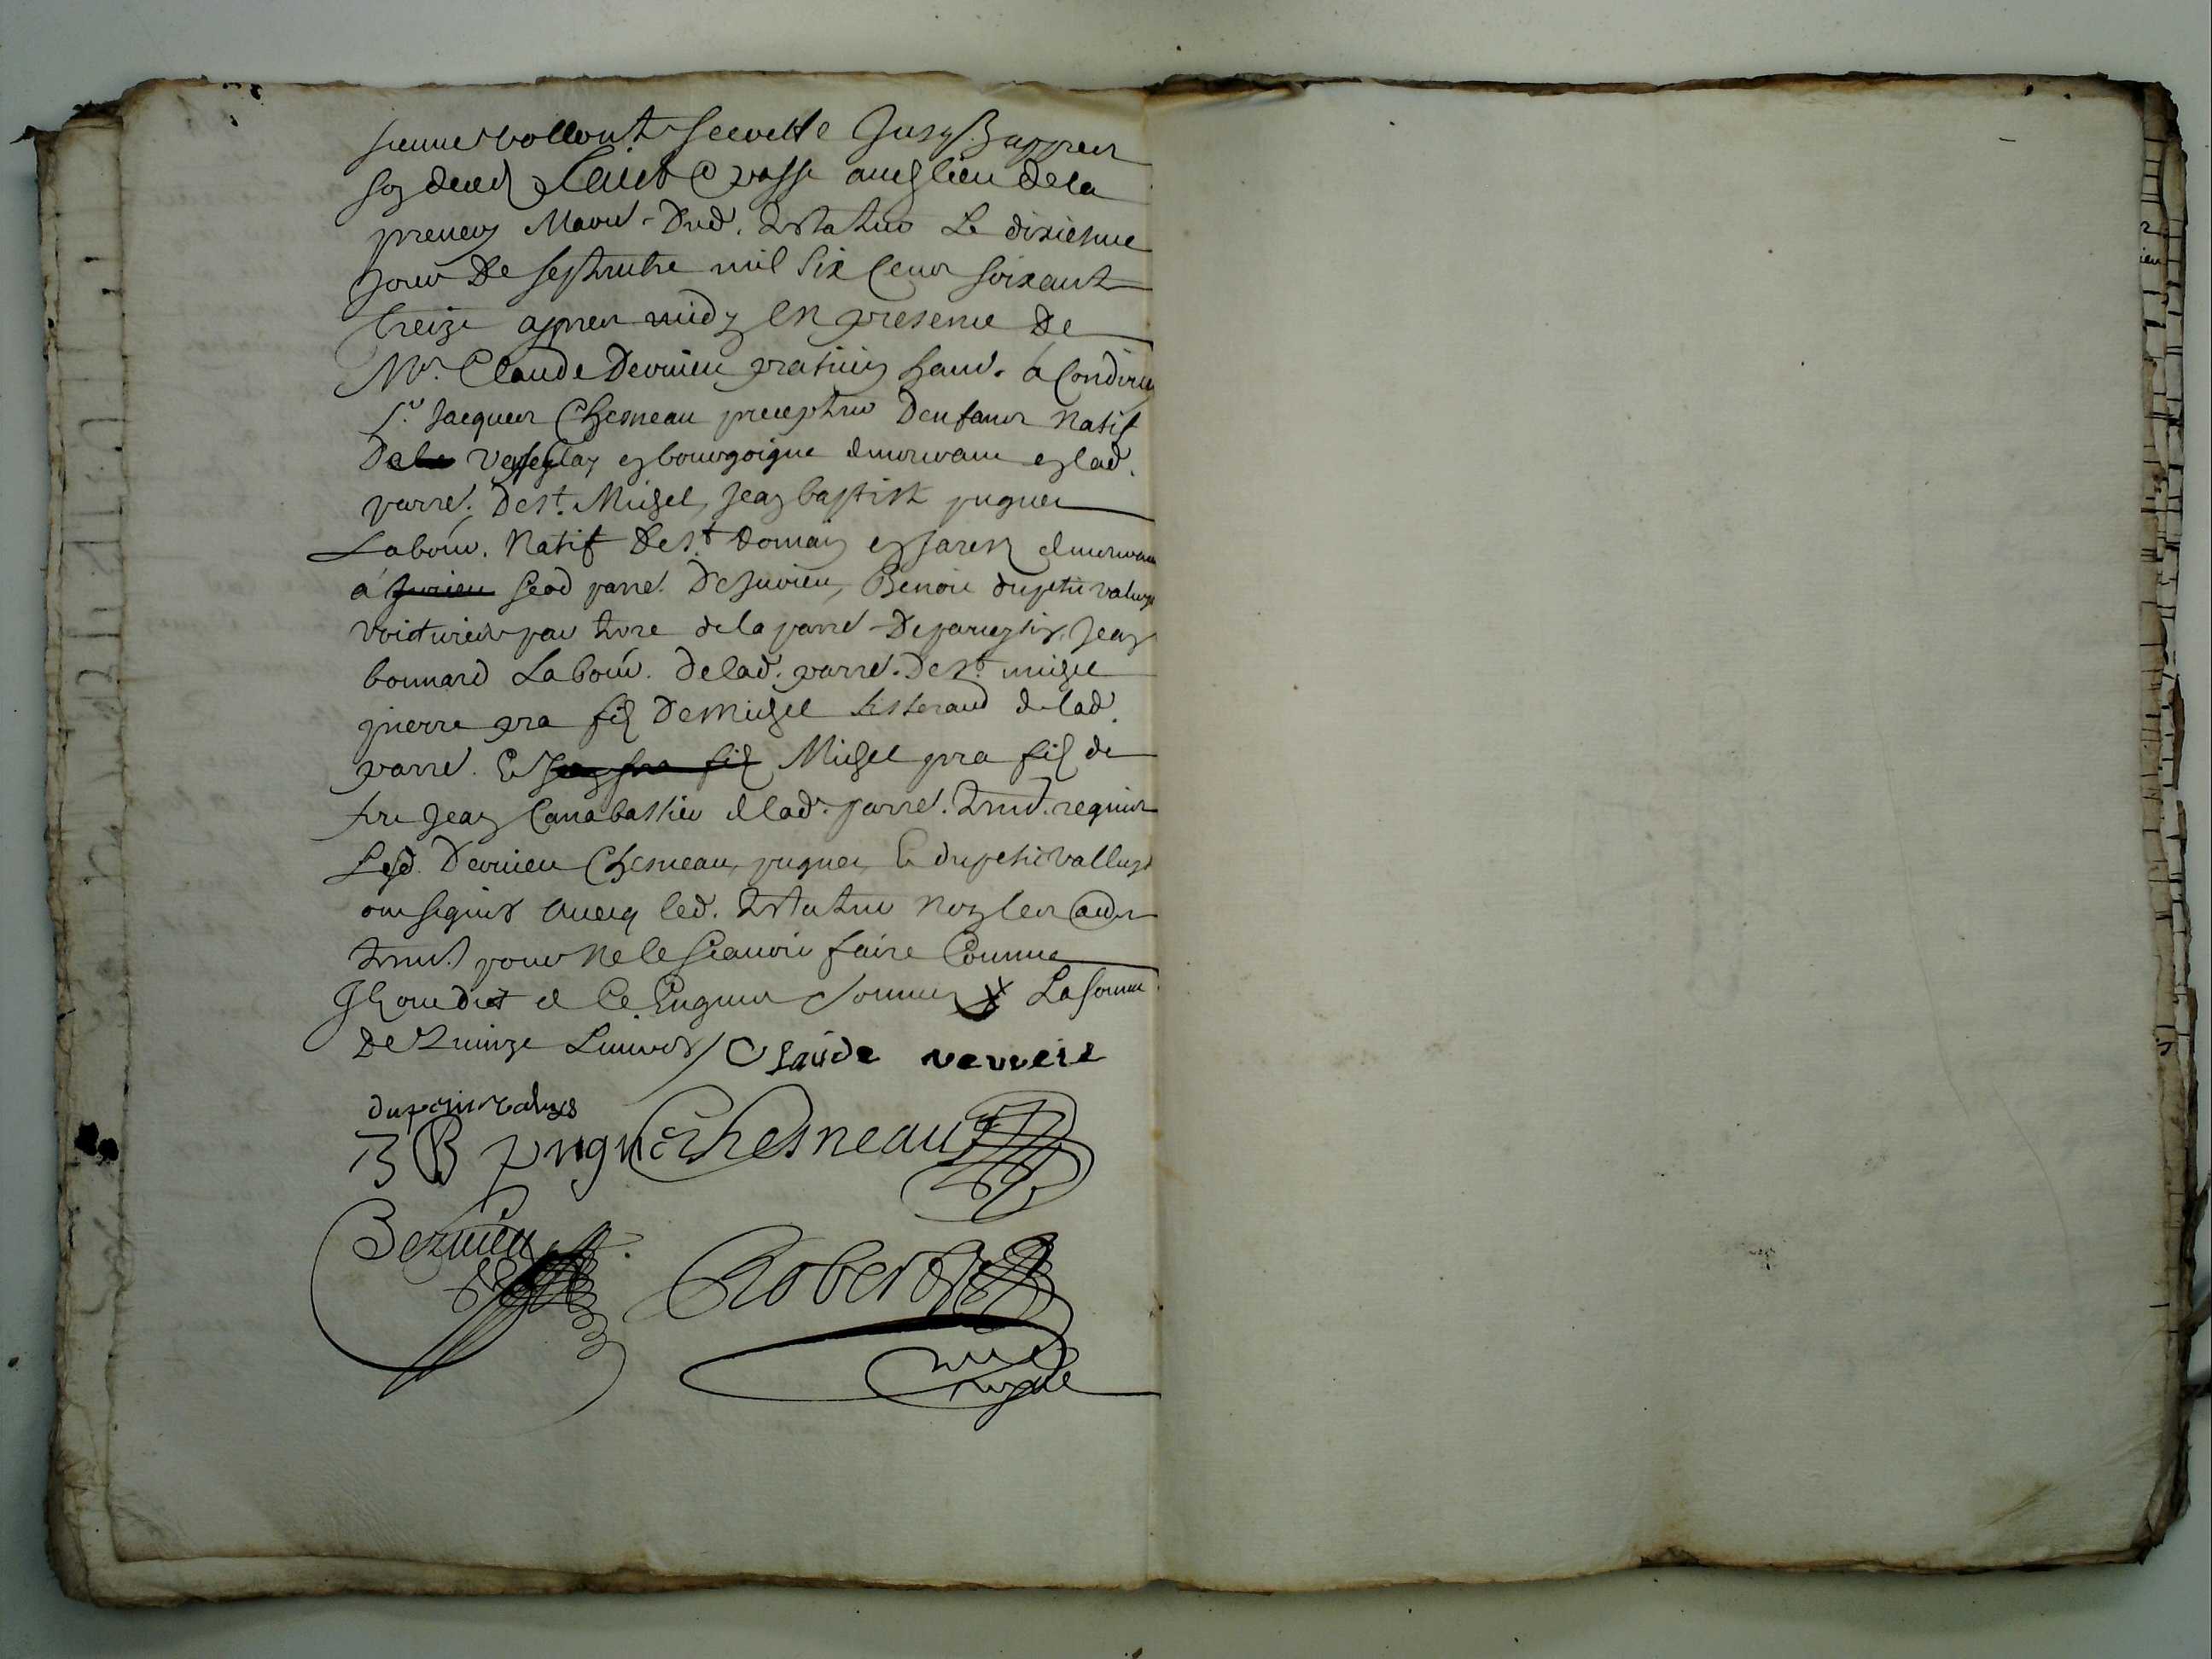 sienne vollonte secrette Jusq. Z appres
son deced faict & passe aud lieu de la
preney Maon. Dud. testateur Le dixiesme
Jour De septembre mil six Cens soixante
treize apres midy en presence De
Mr. Claude Devrieu pratiein habit. à Condrieu
Sr. Jacques Chesneau precepteur Denfans Natif
De Vesselay en bourgoigne demeurant en lad.
parre. De st. Michel, Jean baptiste pugnet
Labour. Natif De st. Romain en Jarest demeurant
a parre. De Jurieu, Benoit dupetit valluys
Voiturier par terre de la parre De Jean
bonnard Labour. De lad. parre. De st. michel
pierre pra fils De Michel tisserand de lad.
parre. Et Michel pra fils de
feu Jean de lad. parre. tesm. requis
Lesd. Devrieu Chesneau, pugnet, Et dupetit valluys
ont signés avecq led. testateur non les aues
tesm. pour ne le scavoir faire Comme
Ilz ont dict et Ce Enquis sommes La somme
De Quinze Livres / Claude verveil
dupetit valuys
J B pugnet Chesneau
Dervieu
Robert
nore royal